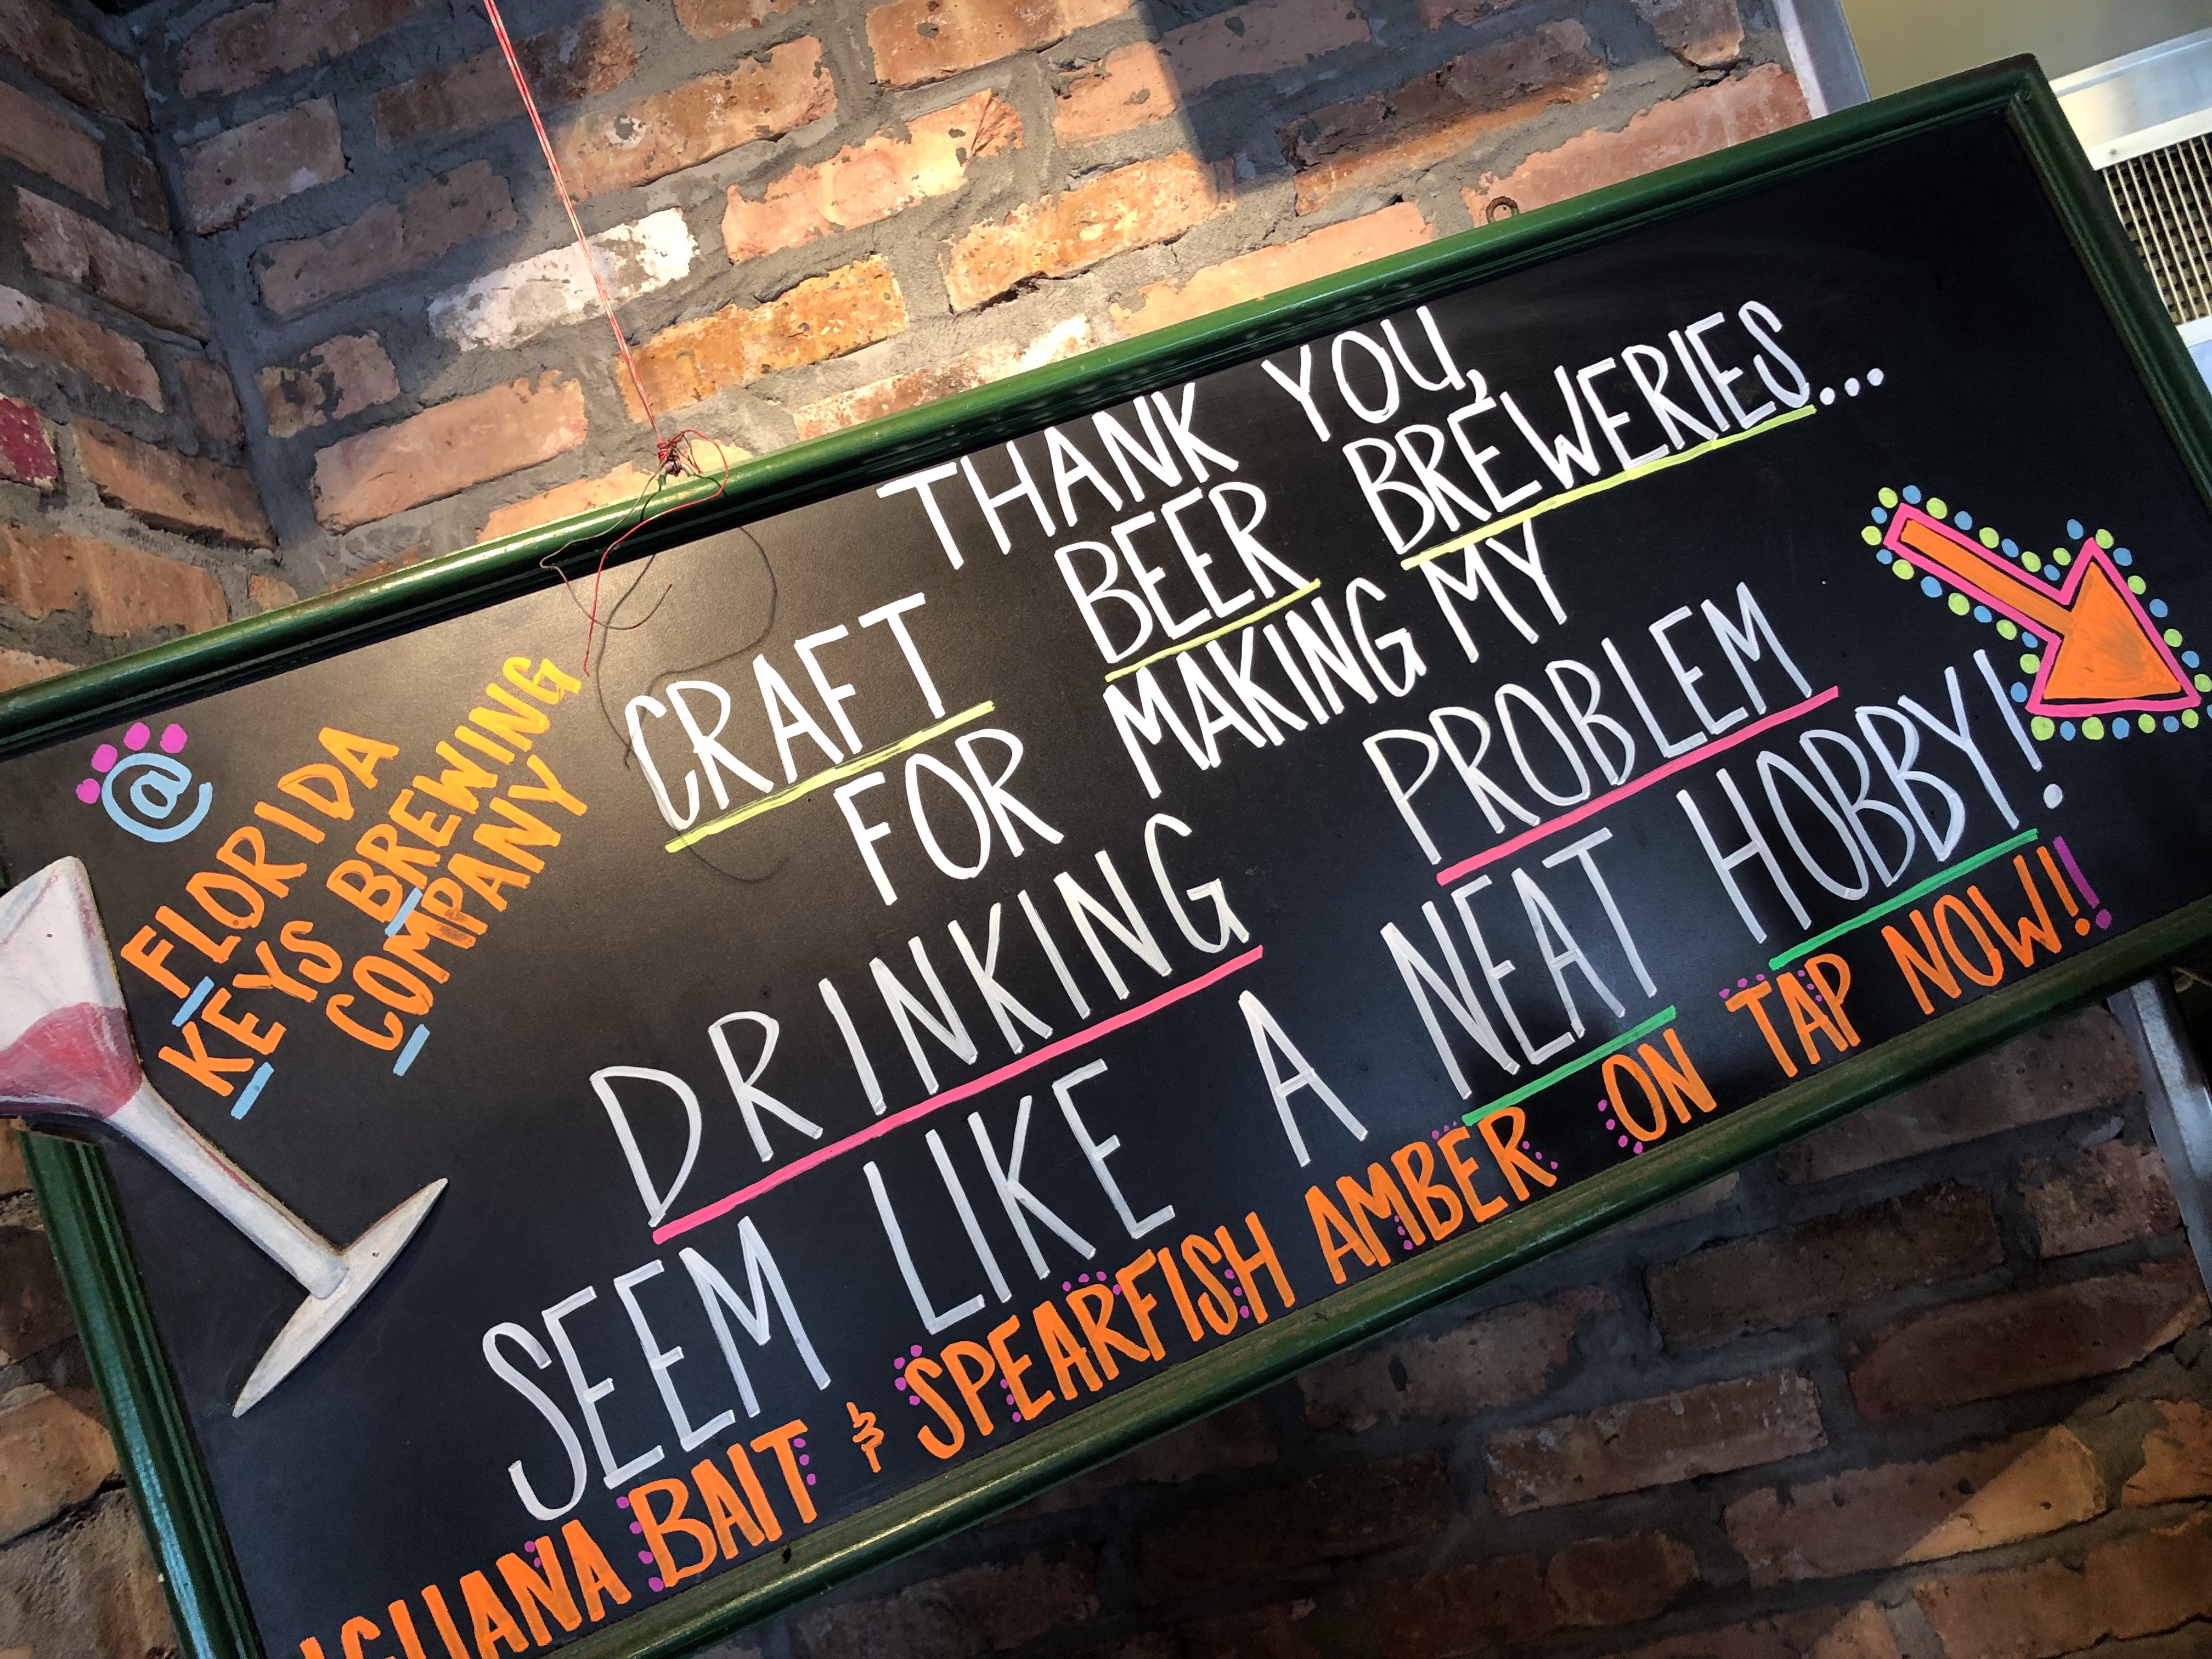 @
FLORIDA
KEYS BREWING
COMPANY
THANK YOU,
CRAFT BEER BREWERIES...
FOR MAKING MY
DRINKING PROBLEM
SEEM LIKE A NEAT HOBBY!
IGUANA BAIT & SPEARFISH AMBER ON TAP NOW!!